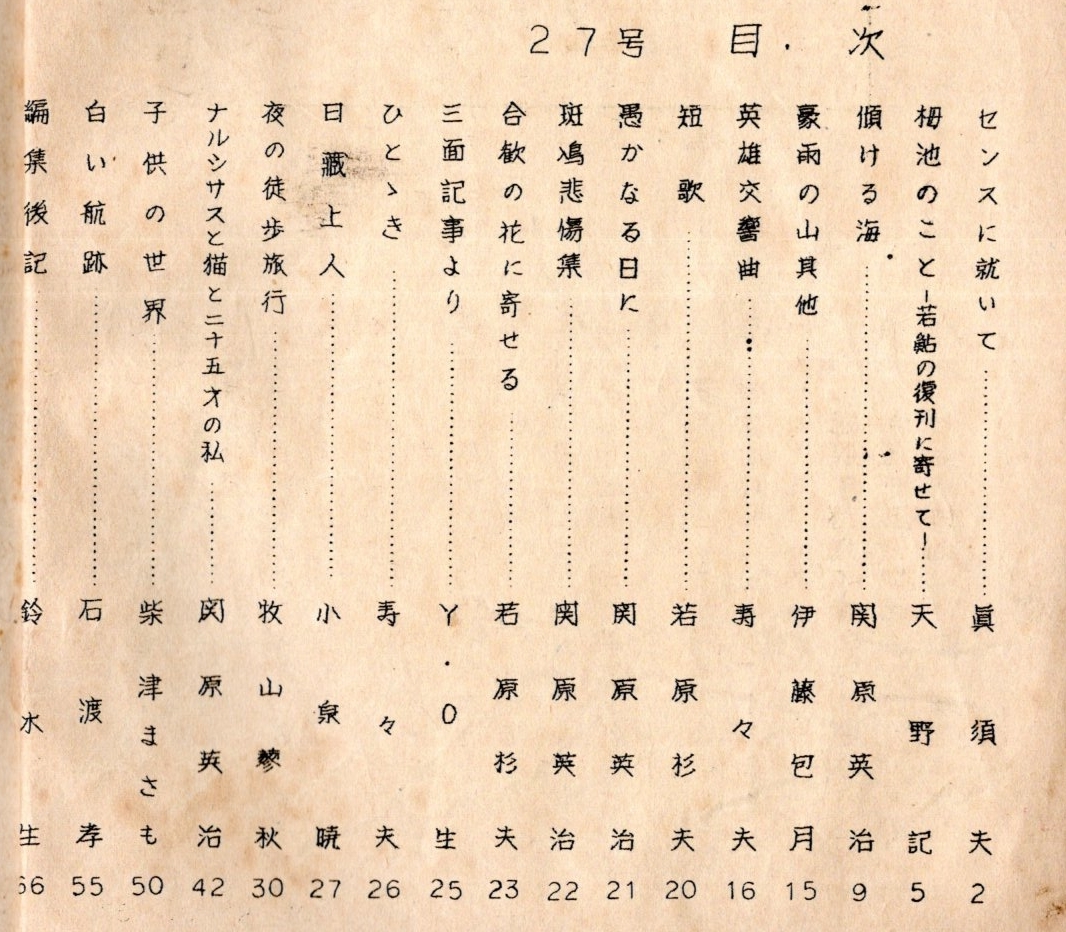 27号 目・次
センスに就いて 眞須夫 2
栂池のこと－若鮎の復刊に寄せて－ 天野記 5
傾ける海 関原英治 9
豪雨の山其他 伊藤包月 15
英雄交響曲 寿々夫 16
短歌 若原杉夫 20
愚かなる日に 関原英治 21
斑鳩悲傷集 関原英治 22
合歓の花に寄せる 若原杉夫 23
三面記事より Y・O生 25
ひとゝき 寿々夫 26
日藏上人 小泉暁 27
夜の徒歩旅行 牧山蓼秋 30
ナルシサスと猫と二十五才の私 関原英治 42
子供の世界 柴津まさも 50
白い航跡 石渡孝 55
編集後記 鈴木生 66